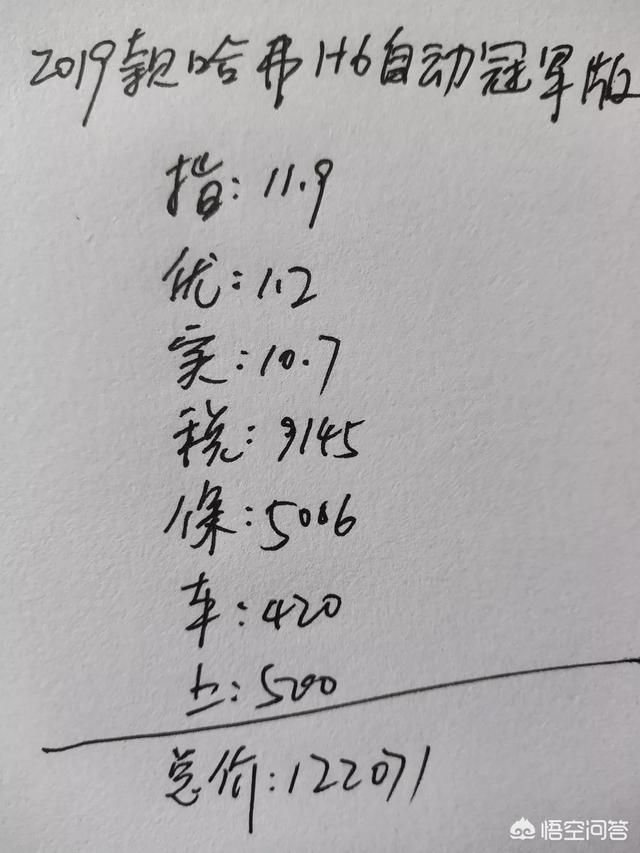 2019款哈弗H6自动冠军版
指:11.9
优:1.2
实:10.7
税:9145
保:5006
车:420
上:500
总价:122071
悟空问答